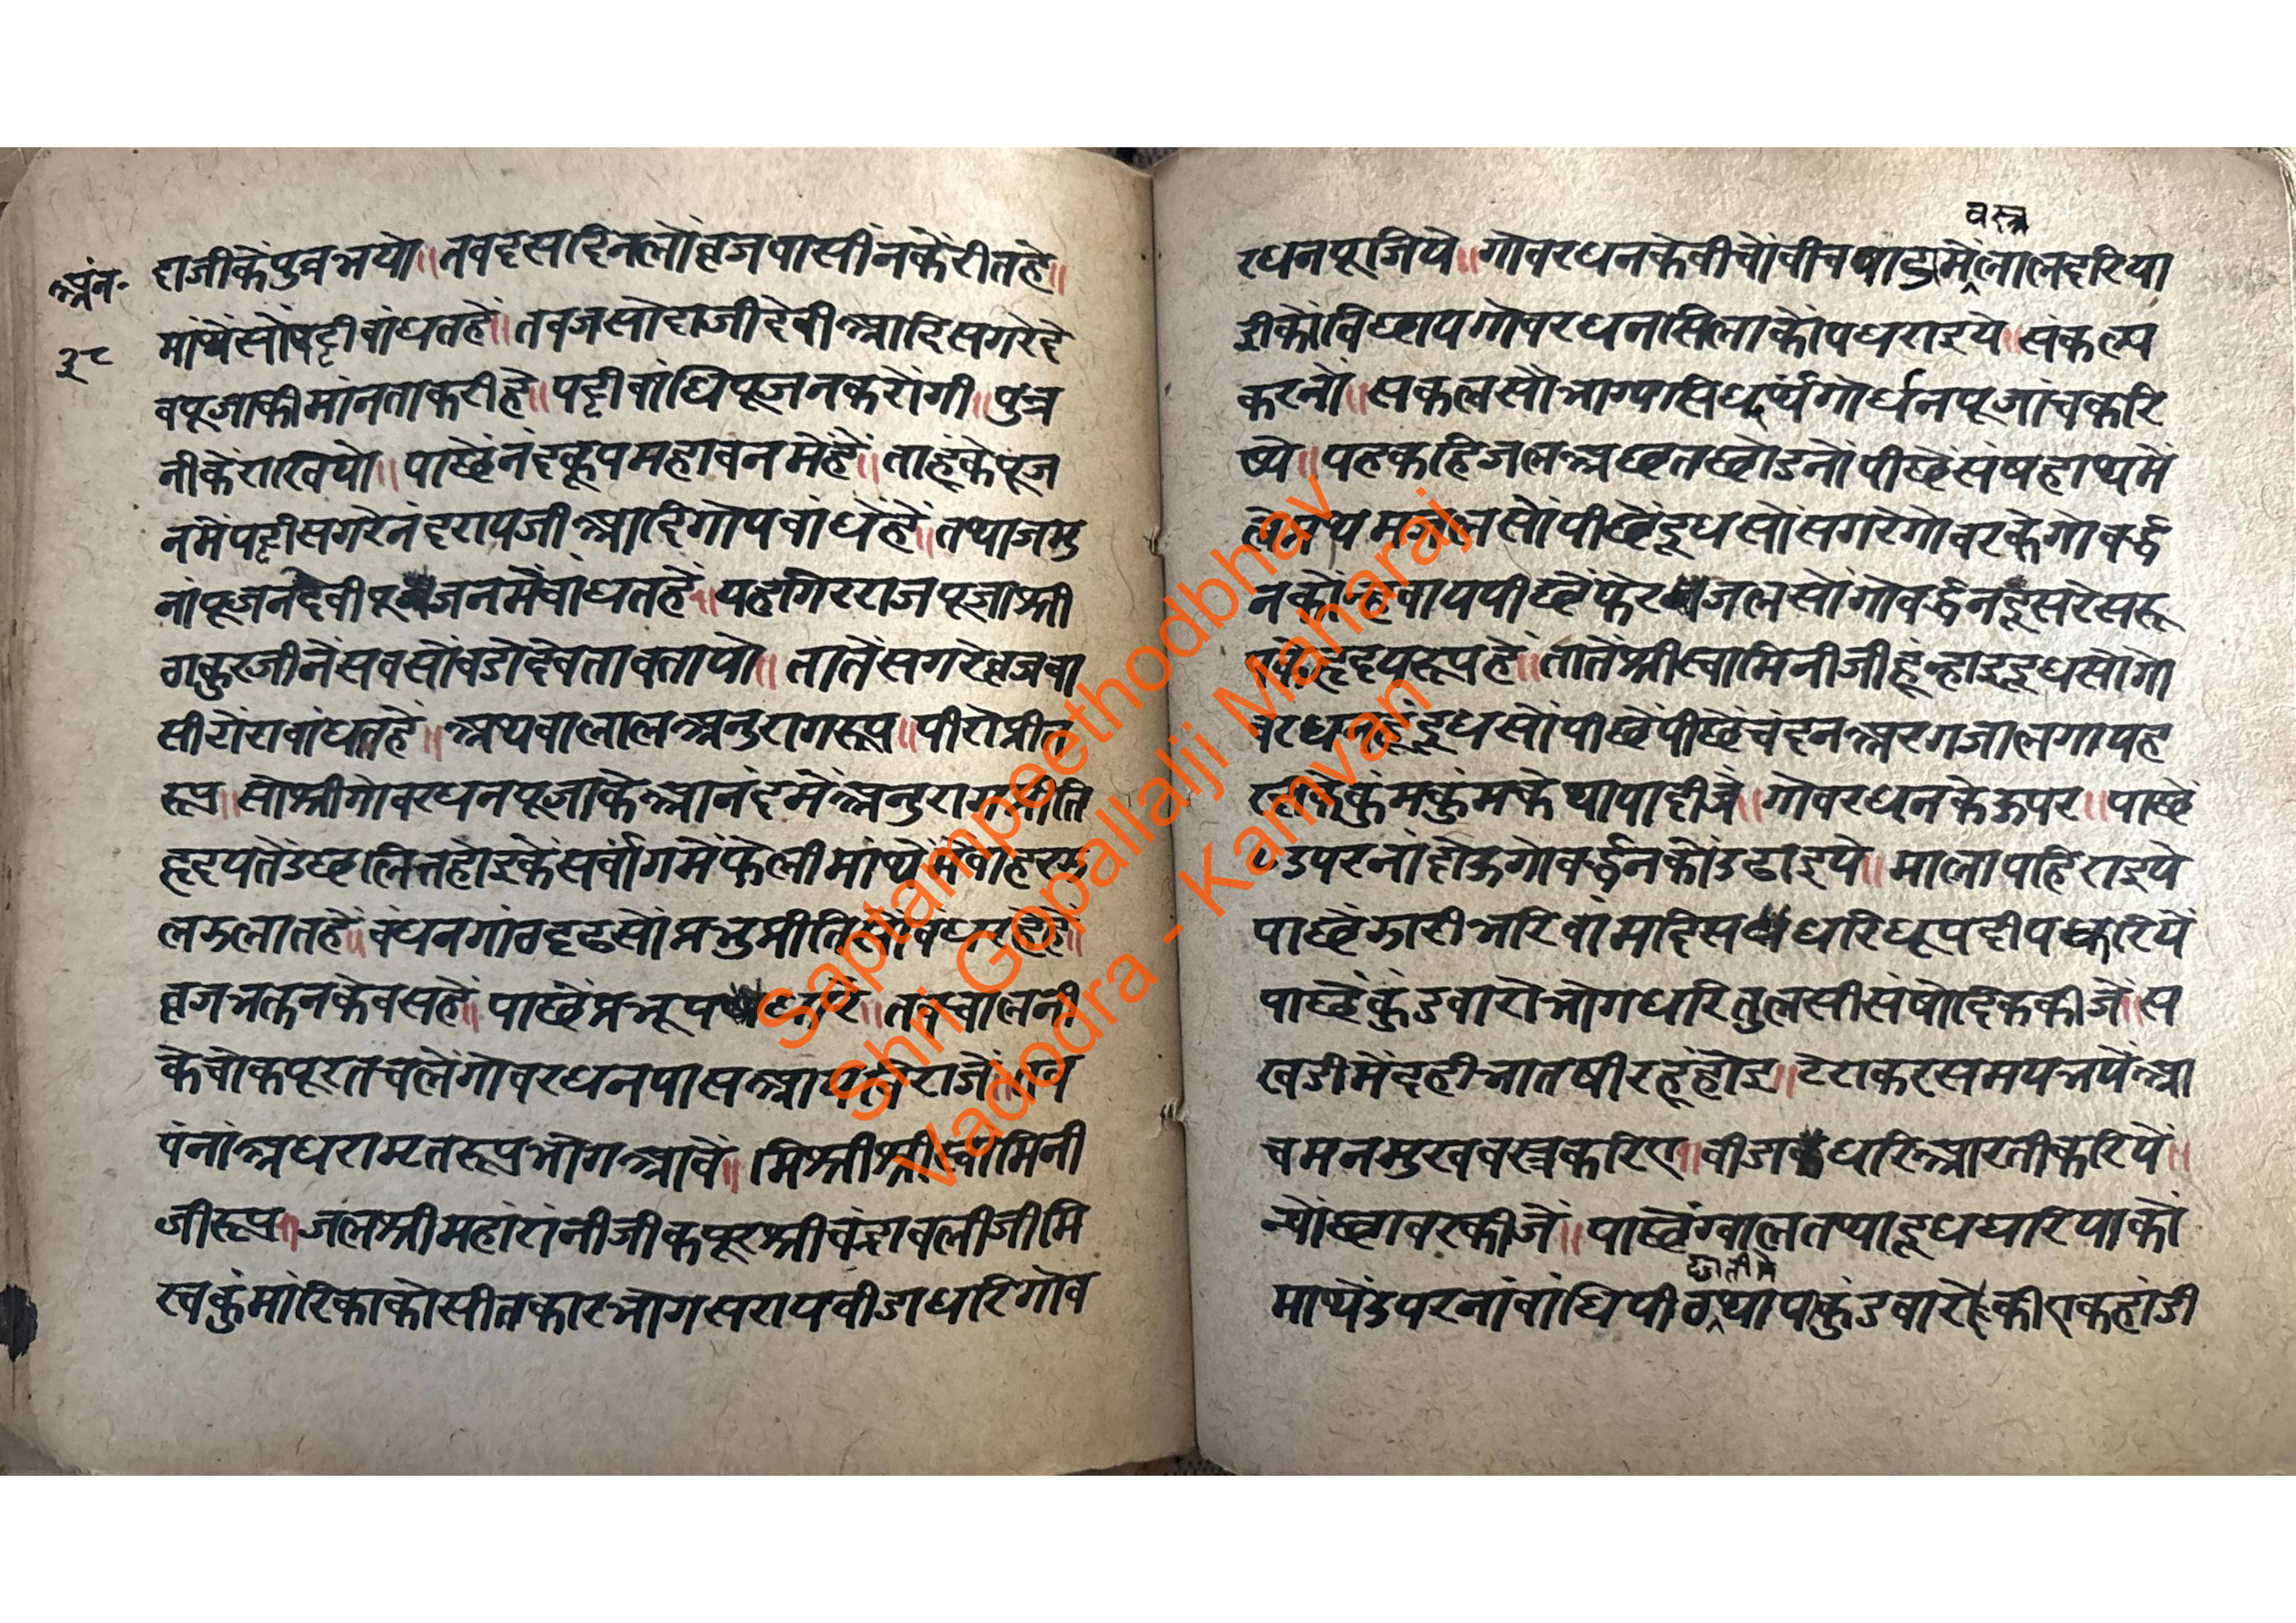 अंन॰
३८
दाजीकें पुत्र भयो॥ तब दस दिन लों ब्रजवासीन कें रीत हे॥
मांथें सों पट्टी बांधत हें॥ तब जसोदाजी देवी आदि सगरे दे
व पूजा की मांनता करी हे॥ पट्टी बांधि पूजन करोंगी॥ पुत्र
नीकें राखियो॥ पाछें नंदकूप महावन में हें॥ ताहूं के पूंज
न में पट्टी सगरे नंदरायजी आदि गोप बांधें हें॥ तथा जमु
नां पूजन देवी पूजन में बांधत हें॥ यह गिरराज पूजा श्री
ठाकुरजी नें सब सों बडो देवता बतायो॥ तातें सगरे ब्रजवा
सी रांरा बांधत हें॥ अथवा लाल अनुराग रूप॥ पीरो प्रीत
रूप॥ सो श्रीगोवरधन पूजा के आनंद में अनुराग प्रीति
हृदय तें उछलित होइकें सर्वांग में फेली मांथे
ल झलात हें॥ बंधन गांठ दृढ सों प्रभु प्रीति
ब्रजभक्तन के बस हें॥ पाछें प्रभू पधारे॥ तब ग्वालनी
के चोक पूरत चलें गोवरधन पास आय बिराजें॥ तब
पंनां अधरामृत रूप भोग आवें॥ मिश्री श्रीस्वामिनी
जी रूप॥ जल श्रीमहांरांनीजी कपूर श्रीचंद्रावलीजी मि
रच कुंमारिका को सीतकार भोग सराय बीडा धरि गोव
वस्त्र
रधन पूजिये॥ गोवरधन के बीचों बीच में लाल दरिया
ई कों बिछाय गोवरधन सिला कों पधराइये॥ संकल्प
करनो॥ सकल सोभाग्य सिध्यर्थं गोर्धन पूजां च करि
ष्ये॥ यह कहि जल अछत छोडनों पीछें संष हाथ में
ले प्रथम जल सों पीछें दूध सों सगरे गोवर के गोवर्द्ध
न कों न्हवाय पीछें फेर जल सों गोवर्द्धन दूसरे सरू
हृदय रूप हें॥ तातें श्रीस्वामिनीजी हूं न्हाइ दूध सों गो
वरधन हूं दूध सों पीछें पीछें चंदन अरगजा लगाय ह
कुंमकुंम के थापा दीजे॥ गोवरधन के ऊपर॥ पाछें
उपरनां दोऊ गोवर्द्धन कों उढाइये॥ माला पहिराइये
पाछें झारी भरि बांम दिस धरि धूप दीप करिये
पाछें कुंडवारो भोग धरि तुलसी संषोदक कीजें॥ स
खडी में दही भात षीर हूं होइ॥ टेरा कर समय भयें आ
चमन मुखवस्त्र करिए॥ बीडा धरि आरती करिये॥
न्योंछावर कीजें॥ पाछें ग्वाल तथा दूधघरिया कों
मांथे उपरनां बांधि पीठ थाप कुंडवारे की एक हांडी